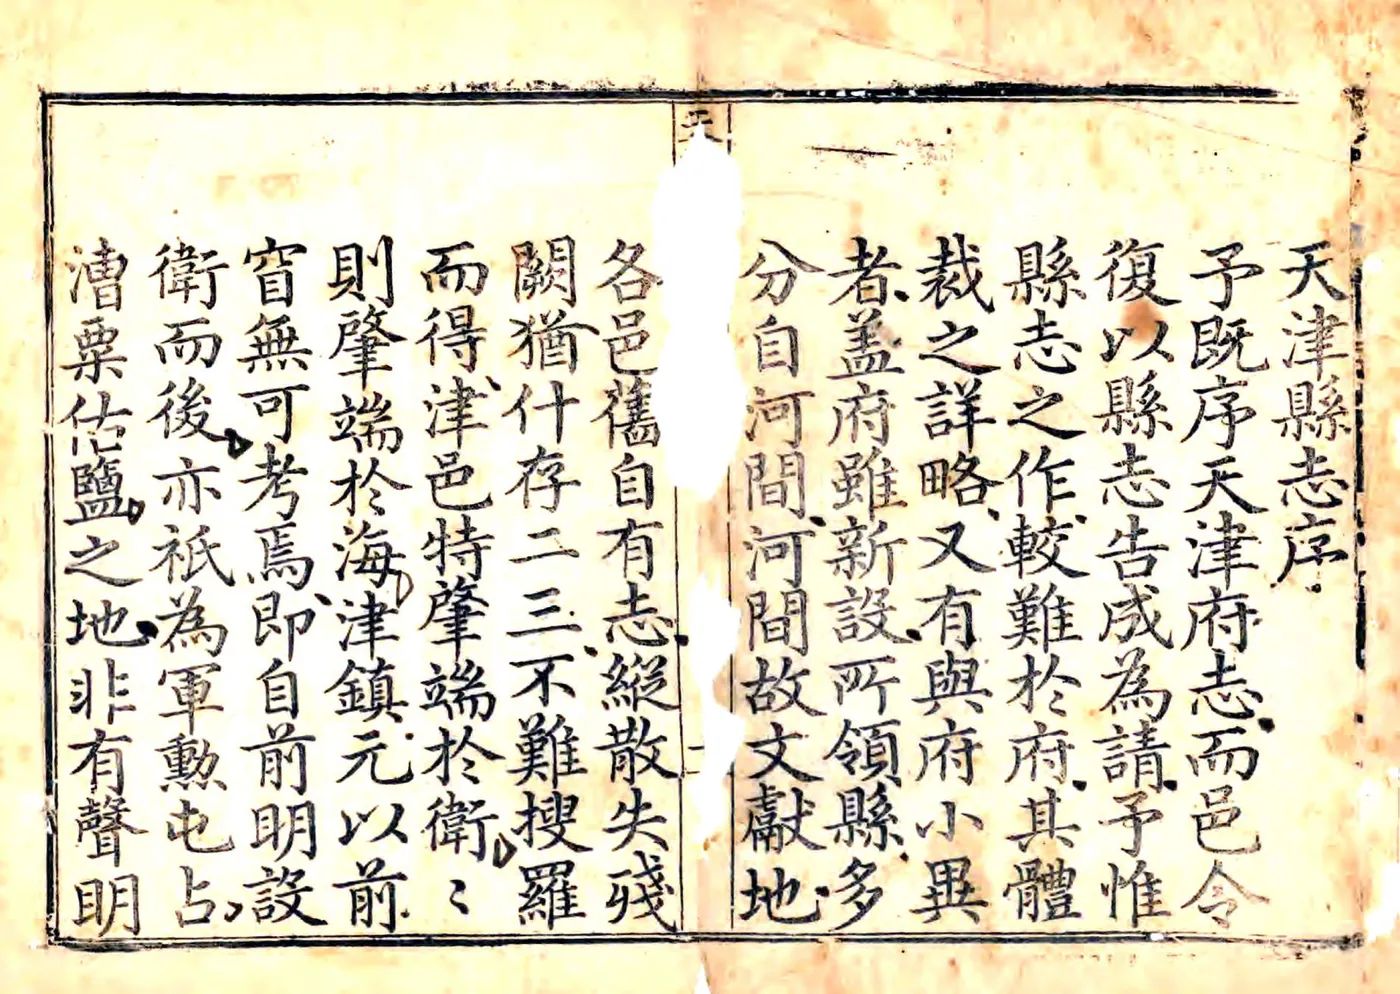 天津縣志序
予既序天津府志而邑令
復以縣志告成為請予惟
縣志之作較難於府其體
裁之詳略又有與府小異
者盖府雖新設所領縣多
分自河間河間故文獻地
各邑舊自有志縱散失殘
闕猶什存二三不難搜羅
而得津邑特肇端於衛〻
則肇端於海津鎮元以前
窅無可考焉即自前明設
衛而後亦祇為軍勲屯占
漕粟佑鹽之地非有聲明